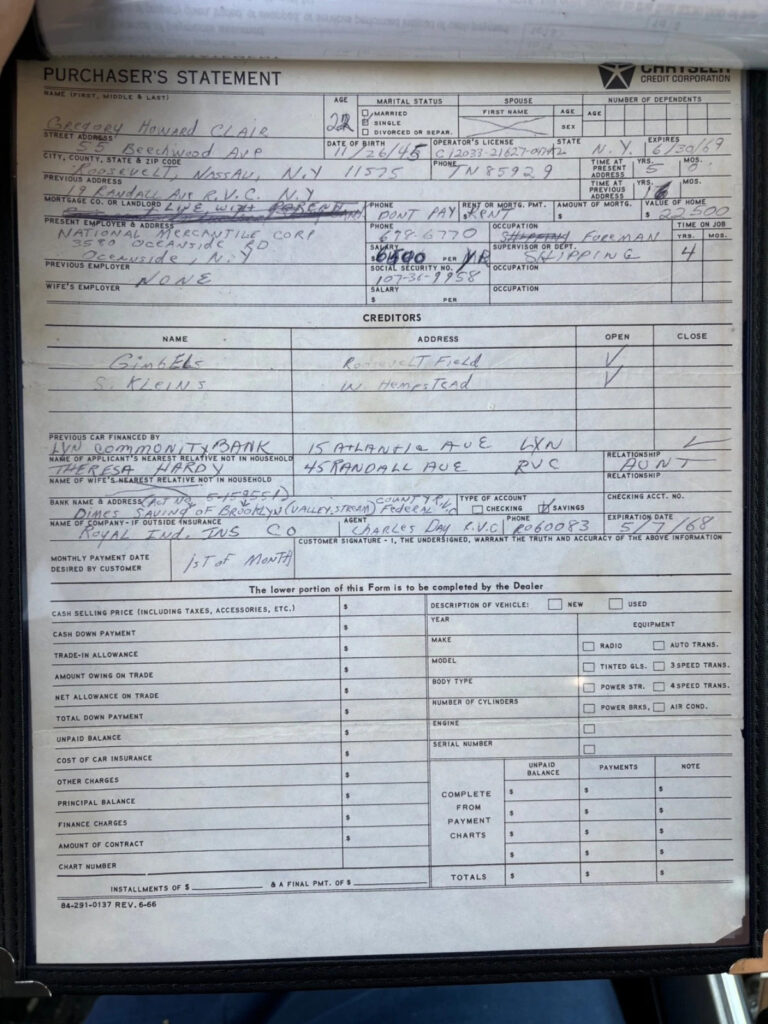 CHRYSLER
PURCHASER'S STATEMENT
CREDIT CORPORATION
NAME (FIRST, MIDDLE & LAST)
AGE
MARITAL STATUS
SPOUSE
NUMBER OF DEPENDENTS
Gregory Howard Clair
22
MARRIED
SINGLE
DIVORCED OR SEPAR.
FIRST NAME
AGE
SEX
AGE
STREET ADDRESS
55 Beechwood Ave
DATE OF BIRTH
11/26/45
OPERATOR'S LICENSE
STATE
N.Y.
EXPIRES
6/30/69
CITY, COUNTY, STATE & ZIP CODE
Roosevelt, Nassau, N.Y 11575
PHONE
IN 85929
TIME AT PRESENT ADDRESS
YRS.
5
MOS.
PREVIOUS ADDRESS
19 Randall Ave R.V.C. N.Y
TIME AT PREVIOUS ADDRESS
YRS.
MOS.
MORTGAGE CO. OR LANDLORD
LIVE WITH
PHONE
DONT PAY RENT
RENT OR MORTG. PMT.
$
AMOUNT OF MORTG.
$
VALUE OF HOME
$ 22,500
PRESENT EMPLOYER & ADDRESS
NATIONAL MERCANTILE CORP
3580 OCEANSIDE RD
OCEANSIDE, N.Y
PHONE
678-6770
OCCUPATION
FOREMAN
TIME ON JOB
YRS.
MOS.
4
SALARY
$ PER YR
SUPERVISOR OR DEPT.
SHIPPING
PREVIOUS EMPLOYER
NONE
SOCIAL SECURITY NO.
107-36-9958
OCCUPATION
WIFE'S EMPLOYER
SALARY
$ PER
OCCUPATION
CREDITORS
NAME
ADDRESS
OPEN
CLOSE
GimbEls
Roosevelt Field
S. Kleins
W. Hempstead
PREVIOUS CAR FINANCED BY
LYN COMMONITY BANK
15 ATLANTIC AVE LYN
NAME OF APPLICANT'S NEAREST RELATIVE NOT IN HOUSEHOLD
THERESA HARDY
45 RANDALL AVE RVC
RELATIONSHIP
AUNT
NAME OF WIFE'S NEAREST RELATIVE NOT IN HOUSEHOLD
RELATIONSHIP
BANK NAME & ADDRESS
DIMES SAVING OF BROOKLYN (VALLEY STREAM) FEDERAL
TYPE OF ACCOUNT
CHECKING
SAVINGS
CHECKING ACCT. NO.
NAME OF COMPANY - IF OUTSIDE INSURANCE
ROYAL IND. INS CO
AGENT
CHARLES DAY R.V.C
PHONE
RO60083
EXPIRATION DATE
5/7/68
MONTHLY PAYMENT DATE DESIRED BY CUSTOMER
1ST OF MONTH
CUSTOMER SIGNATURE - I, THE UNDERSIGNED, WARRANT THE TRUTH AND ACCURACY OF THE ABOVE INFORMATION
The lower portion of this Form is to be completed by the Dealer
CASH SELLING PRICE (INCLUDING TAXES, ACCESSORIES, ETC.) $
CASH DOWN PAYMENT $
TRADE-IN ALLOWANCE $
AMOUNT OWING ON TRADE $
NET ALLOWANCE ON TRADE $
TOTAL DOWN PAYMENT $
UNPAID BALANCE $
COST OF CAR INSURANCE $
OTHER CHARGES $
PRINCIPAL BALANCE $
FINANCE CHARGES $
AMOUNT OF CONTRACT $
CHART NUMBER
INSTALLMENTS OF $ & A FINAL PMT. OF $
DESCRIPTION OF VEHICLE: NEW USED
YEAR
EQUIPMENT
MAKE
RADIO AUTO TRANS.
MODEL
TINTED GLS. 3 SPEED TRANS.
BODY TYPE
POWER STR. 4 SPEED TRANS.
NUMBER OF CYLINDERS
POWER BRKS, AIR COND.
ENGINE
SERIAL NUMBER
COMPLETE FROM PAYMENT CHARTS
UNPAID BALANCE
PAYMENTS
NOTE
$ $ $
$ $ $
$ $ $
$ $ $
TOTALS $ $ $
84-291-0137 REV. 6-66